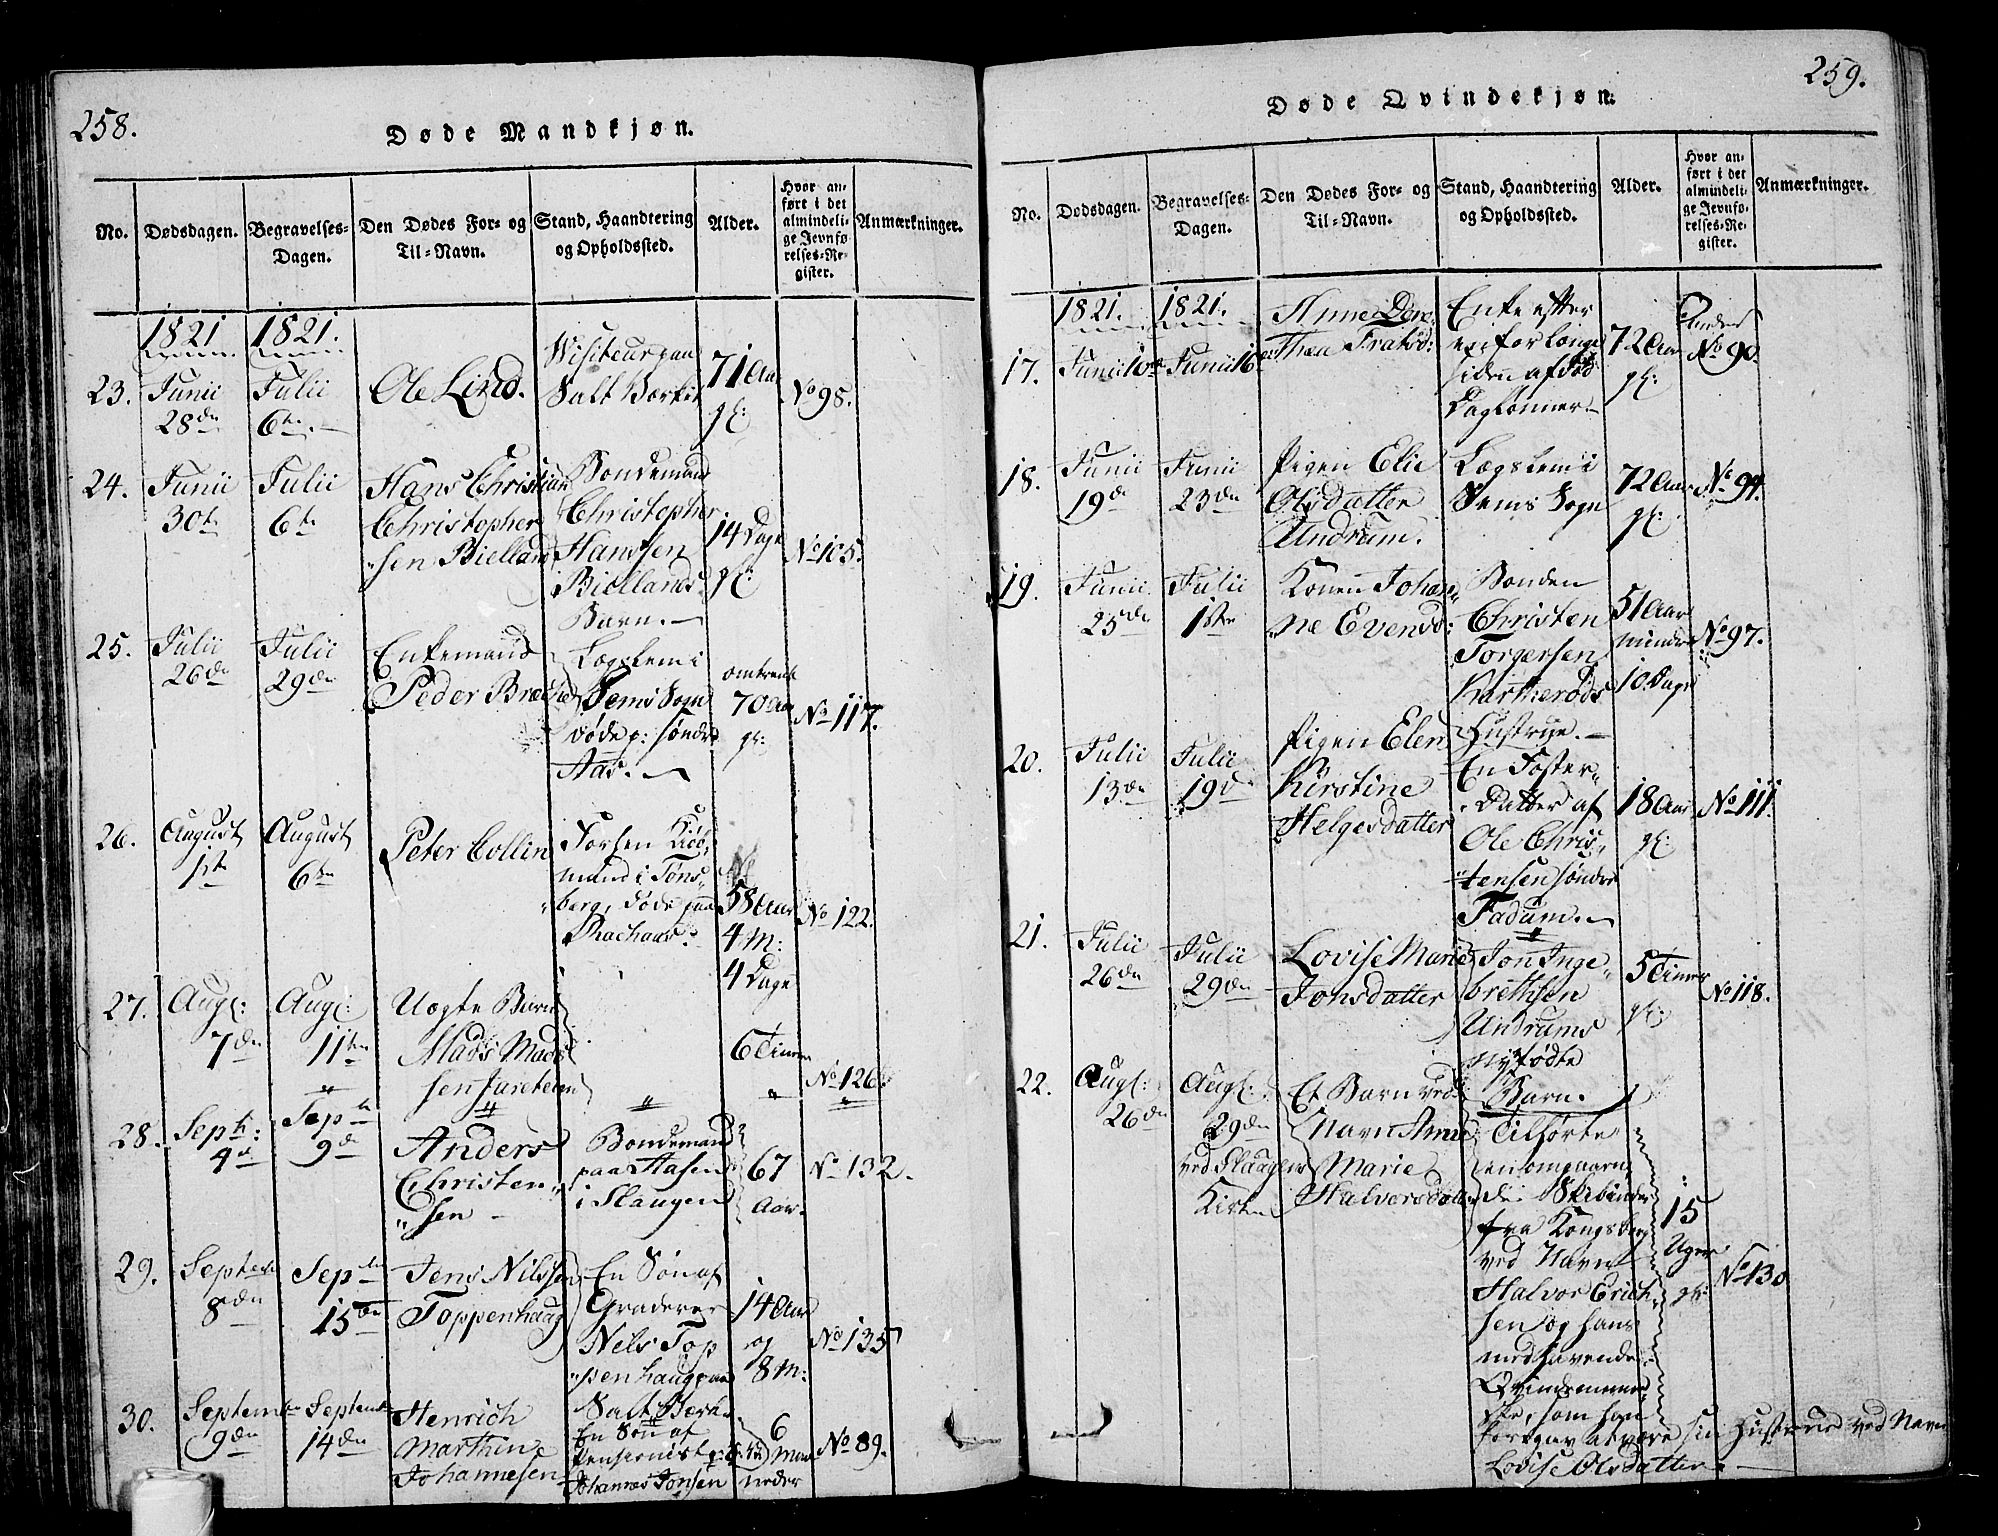 258.
Døde Mandkjøn.
No.
Dødsdagen.
Begravelses-
Dagen.
Den Dødes For- og
Til-Navn.
Stand, Haandtering
og Opholdssted.
Alder.
Hvor an-
ført i det
almindeli-
ge Jevnfø-
relses-Re-
gister.
Anmærkninger.
1821 1821.
23.
Junii
28de
Julii
6te
Ole Lind.
Visiteur paa
Salt Værket
71 Aar
gl:
No 98.
24.
Junii
30te
Julii
6te
Hans Christian
Christopher
"sen Bielland
Bondemand
Christopher
Hanssen
Biellands
Barn.
14 Dage
gl:
No 105.
25.
Julii
26de
Julii
29de
Enkemand
Peder
Lægslem i
Sems Sogn
døde p: søndre
Aas.
omtrent
70 Aar
gl:
No 117.
26.
August
1ste
August
6te
Peter Collin
Forhen Kiøb,,
mand i Tøns,,
"berg, døde paa
58 Aar
4 M:
4 Dage
No 122.
27.
Aug:
7de
Aug:
11te
Uægte Barn
Mads Mad
sen
6 Timer
No 126
28.
Septb:
4de
Septb
9de
Anders
Christen,,
"sen
Bondemand
paa Aasen
i Slaugen
67
Aar.
No 132.
29.
Septembr
8de
Septbr
15de
Jens Nilssen
Toppenhaug
En Søn af
Graderer
Nels Top
"penhaug paa
Salt Værk
14 Aar
og
8 M:
No 135
30.
September
9de
September
14de
Henrich
Marthin
Johannesen
En Søn af
Pensionist
Johannes Jonsen
6 Maa
neder
No 89.
259.
Døde Qvindekjøn.
No.
Dødsdagen.
Begravelses-
Dagen.
Den Dødes For- og
Til-Navn.
Stand, Haandtering
og Opholdssted.
Alder.
Hvor an-
ført i det
almindeli-
ge Jevnfø-
relses-Re-
gister.
Anmærkninger.
1821. 1821.
17.
Junii 10de
Junii 16
Anne Doro,,
"thea
Enke efter
en for længe
siden afdød
Daglønner
72 Aar
gl:
Under
No 90.
18.
Junii
19de
Junii
23de
Pigen Elie
Olsdatter
Undrum.
Lægslem i
Sems Sogn
72 Aar
gl:
No 94.
19.
Junii
25de
Julii
1ste
Konen Johan,,
"ne Evensd:
Bonden
Christen
Torgersen
Hustrue.
51 Aar
mindre
10 Dage
No 97.
20.
Julii
13de
Julii
19de
Pigen Elen
Kirstine
Helgesdatter
En Foster,,
Datter af
Ole Chris,,
"tensen søndre
Fadum.
18 Aar
gl:
No 111.
21.
Julii
26de
Julii
29de
Lovise Marie
Jonsdatter
Jon Inge,,
brethsen
Undrums
nyfødte
Barn.
5 Timer
gl:
No 118.
22.
Aug:
26de
Aug:
29de
ved Slaugens
Kirke
Et Barn ved
Navn Anne
Marie
Halversdatter
Tilhørte
en omgaaen,,
de
fra Kongsberg
ved Navn
Halvor Erich
sen og hans
medhavende
Qvindemenne
ske, som han
foregav at være sin Hustrue ved Navn
Lovise Olsdatter.
15
Uger
gl:
No 130